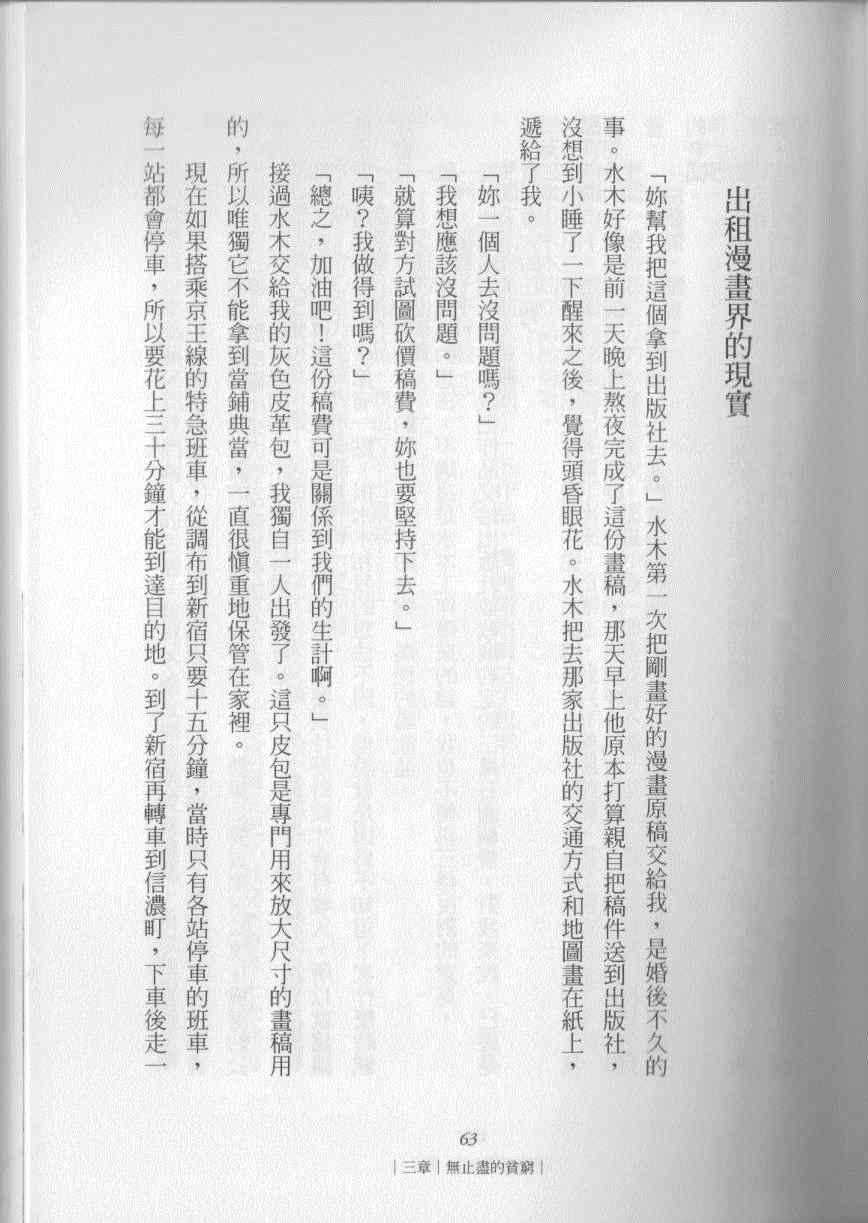 出租漫畫界的現實
「妳幫我把這個拿到出版社去。」水木第一次把剛畫好的漫畫原稿交給我，是婚後不久的
事。水木好像是前一天晚上熬夜完成了這份畫稿，那天早上他原本打算親自把稿件送到出版社，
沒想到小睡了一下醒來之後，覺得頭昏眼花。水木把去那家出版社的交通方式和地圖畫在紙上，
遞給了我。
「妳一個人去沒問題嗎？」
「我想應該沒問題。」
「就算對方試圖砍價稿費，妳也要堅持下去。」
「咦？我做得到嗎？」
「總之，加油吧！這份稿費可是關係到我們的生計啊。」
接過水木交給我的灰色皮革包，我獨自一人出發了。這只皮包是專門用來放大尺寸的畫稿用
的，所以唯獨它不能拿到當鋪典當，一直很慎重地保管在家裡。
現在如果搭乘京王線的特急班車，從調布到新宿只要十五分鐘，當時只有各站停車的班車，
每一站都會停車，所以要花上三十分鐘才能到達目的地。到了新宿再轉車到信濃町，下車後走一
63
|三章|無止盡的貧窮|